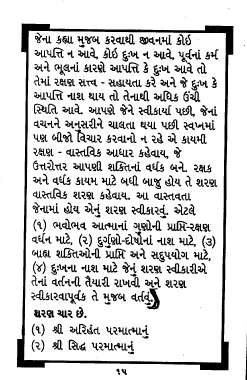 જેના કહ્યા મુજબ કરવાથી જીવનમાં કોઈ
આપત્તિ ન આવે, કોઈ દુઃખ ન આવે. પૂર્વનાં કર્મ
અને ભૂલનાં કારણે આપત્તિ કે દુઃખ આવે તો
તેમાં રક્ષણ સત્ત્વ - સહાયતા કરે અને જે દુઃખ કે
આપત્તિ નાશ થાય તો તેનાથી અધિક ઉંચી
સ્થિતિ આવે. આપણે જેને સ્વીકાર્યા પછી, જેનાં
વચનને અનુસરીને ચાલતા થયા પછી સ્વપ્નમાં
પણ બીજો વિચાર કરવાનો ન રહે એ કાયમી
રક્ષણ - વાસ્તવિક આધાર કહેવાય, જે
ઉત્તરોત્તર આપણી શક્તિનાં વર્ધક બને. રક્ષક
અને વર્ધક કાયમ માટે બધી બાજુ હોય તે શરણ
વાસ્તવિક શરણ કહેવાય. આ વાસ્તવતા
જેનામાં હોય એનું શરણ સ્વીકારવું. એટલે
(૧) ભવોભવ આત્માનાં ગુણોની પ્રાપ્તિ-રક્ષણ
વર્ધન માટે, (૨) દુર્ગુણો-દોષોનાં નાશ માટે, (૩)
બાહ્ય શક્તિઓની પ્રાપ્તિ અને સદુપયોગ માટે,
(૪) દુઃખના નાશ માટે જેનું શરણ સ્વીકારીએ
તેનાં વર્તનની તૈયારી રાખવી અને શરણ
સ્વીકારવાપૂર્વક તે મુજબ વર્તવું.
શરણ ચાર છે.
(૧) શ્રી અરિહંત પરમાત્માનું
(૨) શ્રી સિદ્ધ પરમાત્માનું
૧૫